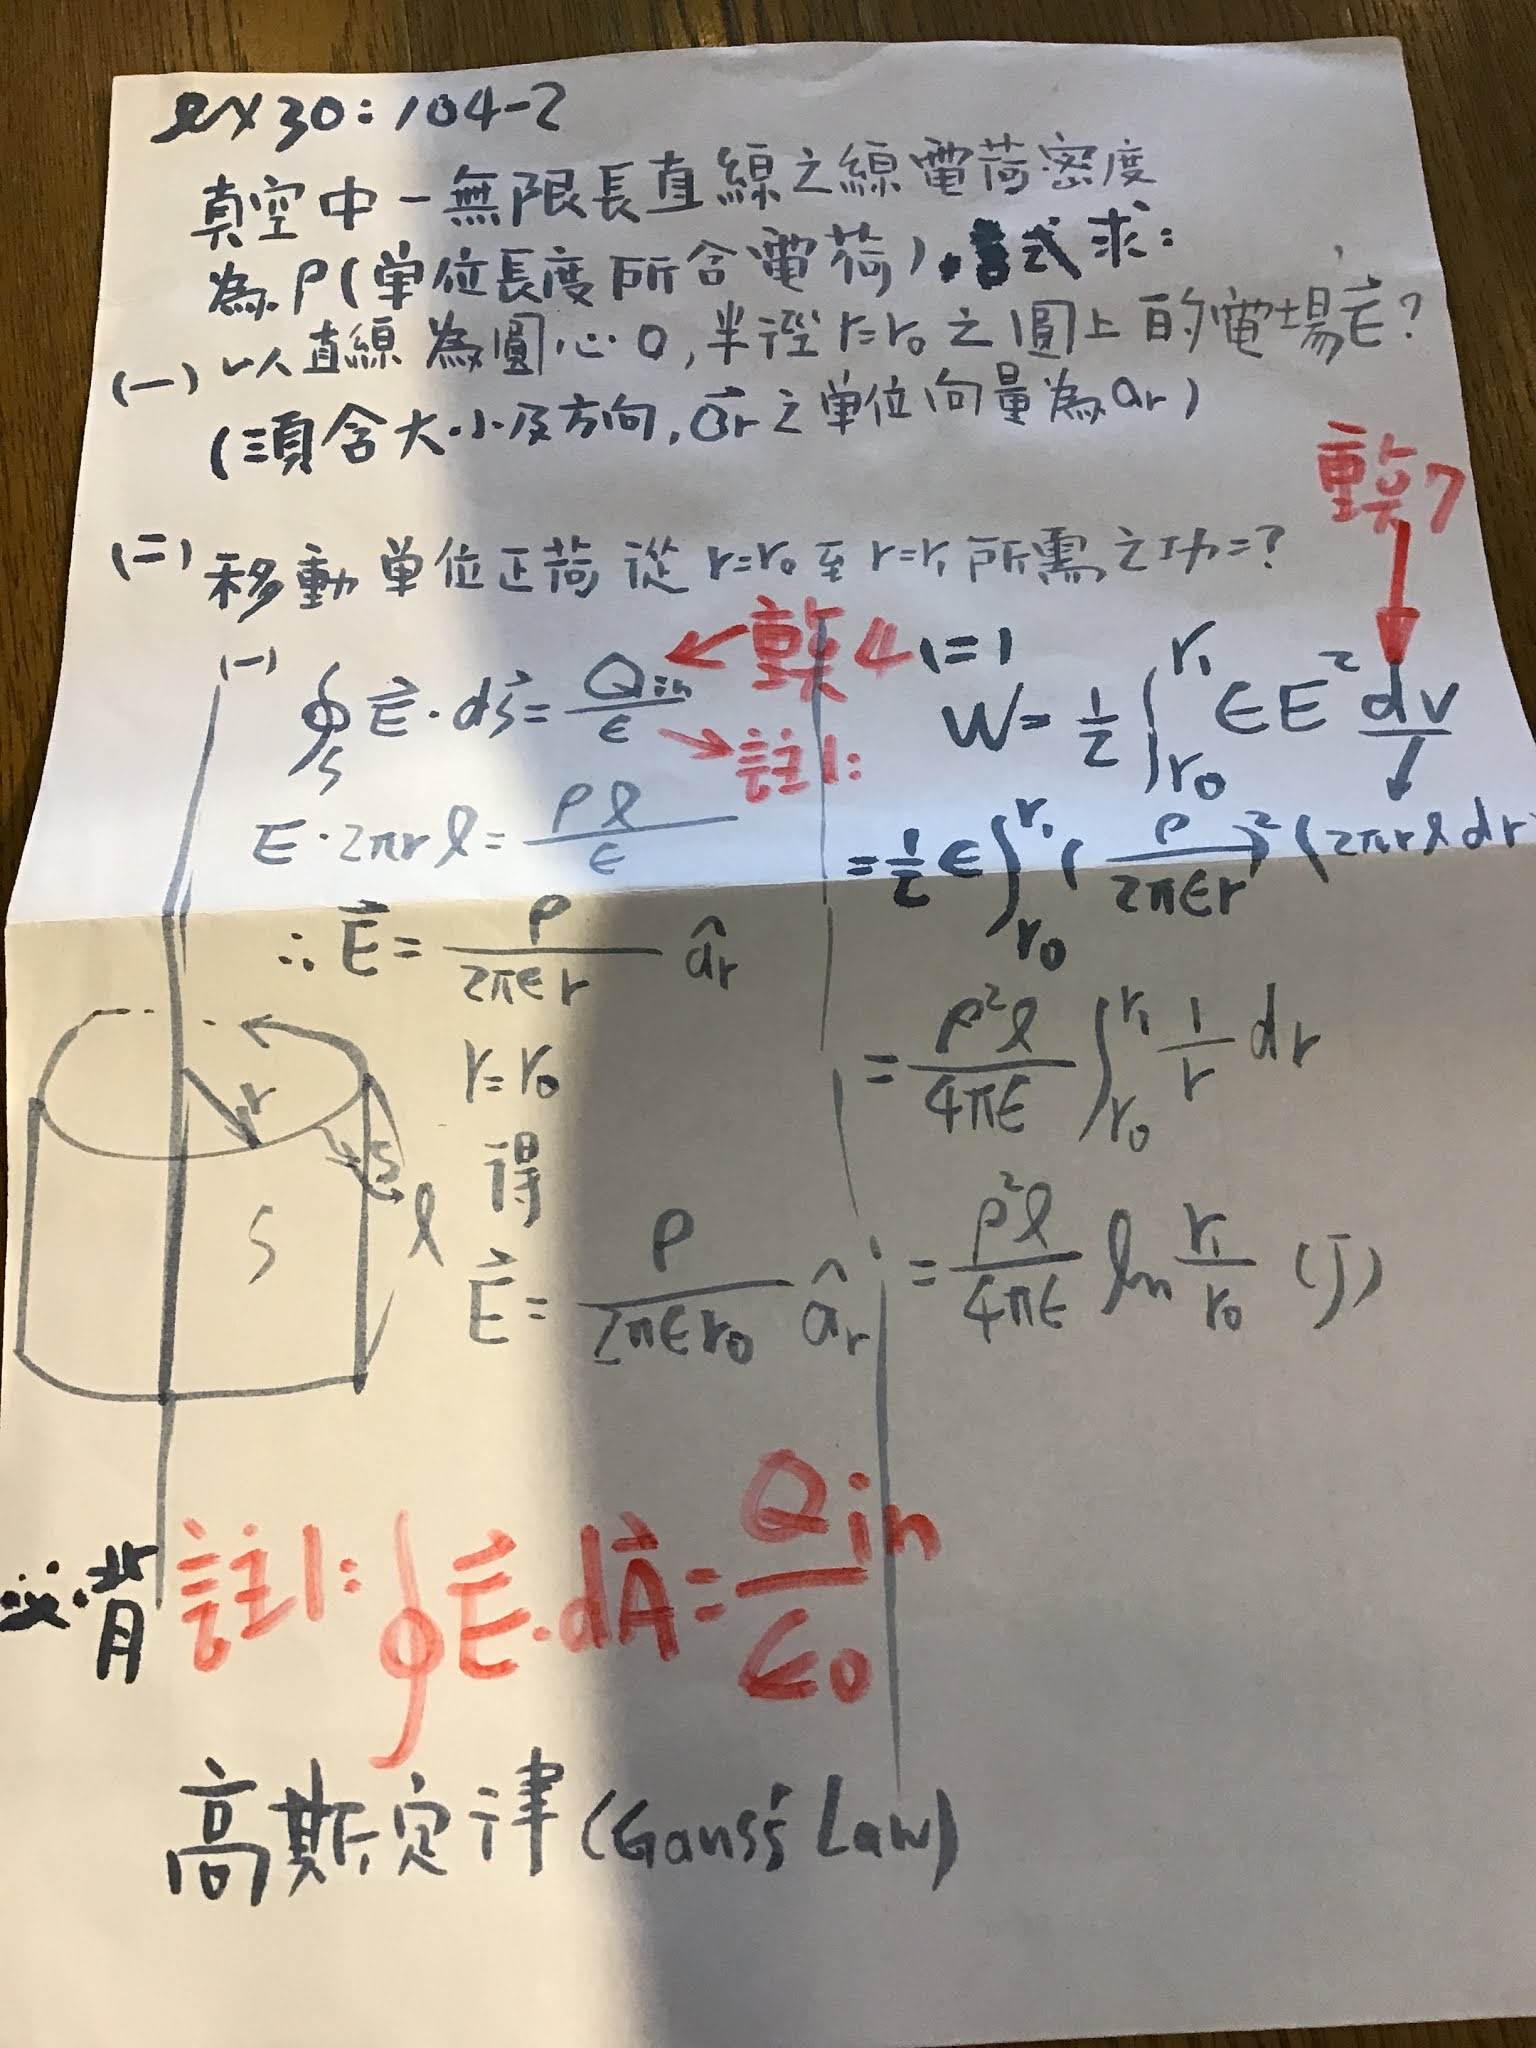 ex30：104-2
真空中一無限長直線之線電荷密度
為ρ(單位長度所含電荷)，試求：
(一) 以直線為圓心O, 半徑r=r₀之圓上的電場E⃗？
(須含大小及方向, a⃗r之單位向量為ar)
(二) 移動單位正荷從r=r₀至r=r₁所需之功=?
(一)
∮s E⃗·ds⃗ = Qin/ε
4
註1:
E·2πrℓ = ρℓ/ε
∴ E⃗ = ρ/(2πεr) âr
r=r₀
得
E⃗ = ρ/(2πεr₀) âr
r
S
ℓ
7
(二)
W = 1/2 ∫r₀^r₁ εE² dv
= 1/2 ε ∫r₀^r₁ (ρ/(2πεr))² (2πrℓdr
= ρ²ℓ/(4πε) ∫r₀^r₁ 1/r dr
= ρ²ℓ/(4πε) ln r₁/r₀ (J)
必背 註1: ∮E⃗·dA⃗ = Qin/ε₀
高斯定律 (Gauss's Law)